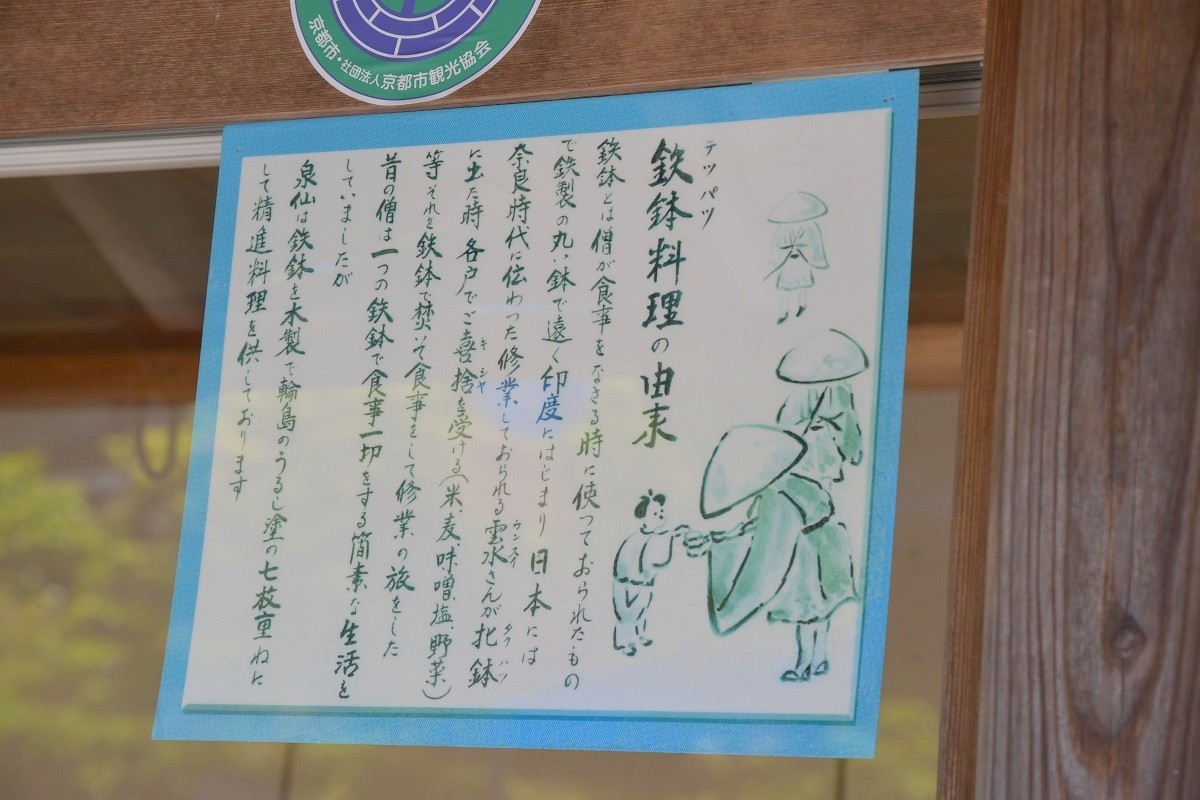 京都市・社団法人京都市観光協会
テツパツ
鉄鉢料理の由来
鉄鉢とは僧が食事をなさる時に使っておられたもの
で鉄製の丸い鉢で遠く印度にはじまり日本には
奈良時代に伝わった修業しておられる雲水さんが托鉢
ウンスイ
タクハツ
に出た時各戸でご喜捨を受ける(米麦味噌塩野菜)
キシャ
等それを鉄鉢で焚いて食事をして修業の旅をした
昔の僧は一つの鉄鉢で食事一切をする簡素な生活を
していましたが
泉仙は鉄鉢を木製で輪島のうるし塗の七枚重ねに
して精進料理を供しております